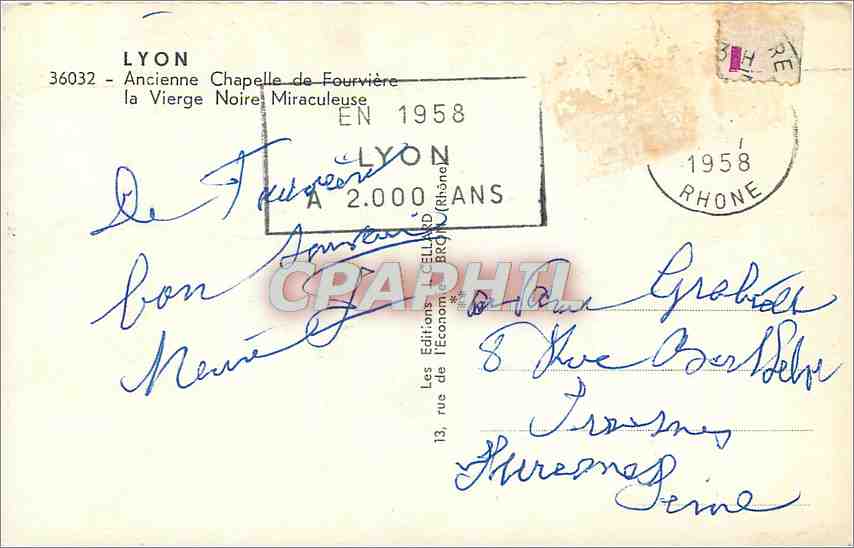 LYON
36032 - Ancienne Chapelle de Fourvière
la Vierge Noire Miraculeuse
EN 1958
LYON
A 2.000 ANS
3 H
RE
1958
RHONE
De Fourvière
bon souvenir
Les Editions J. CELLARD
13, rue de l'Economie - BRON (Rhône)
CPAPHIL
8 Rue
Suresnes
Seine